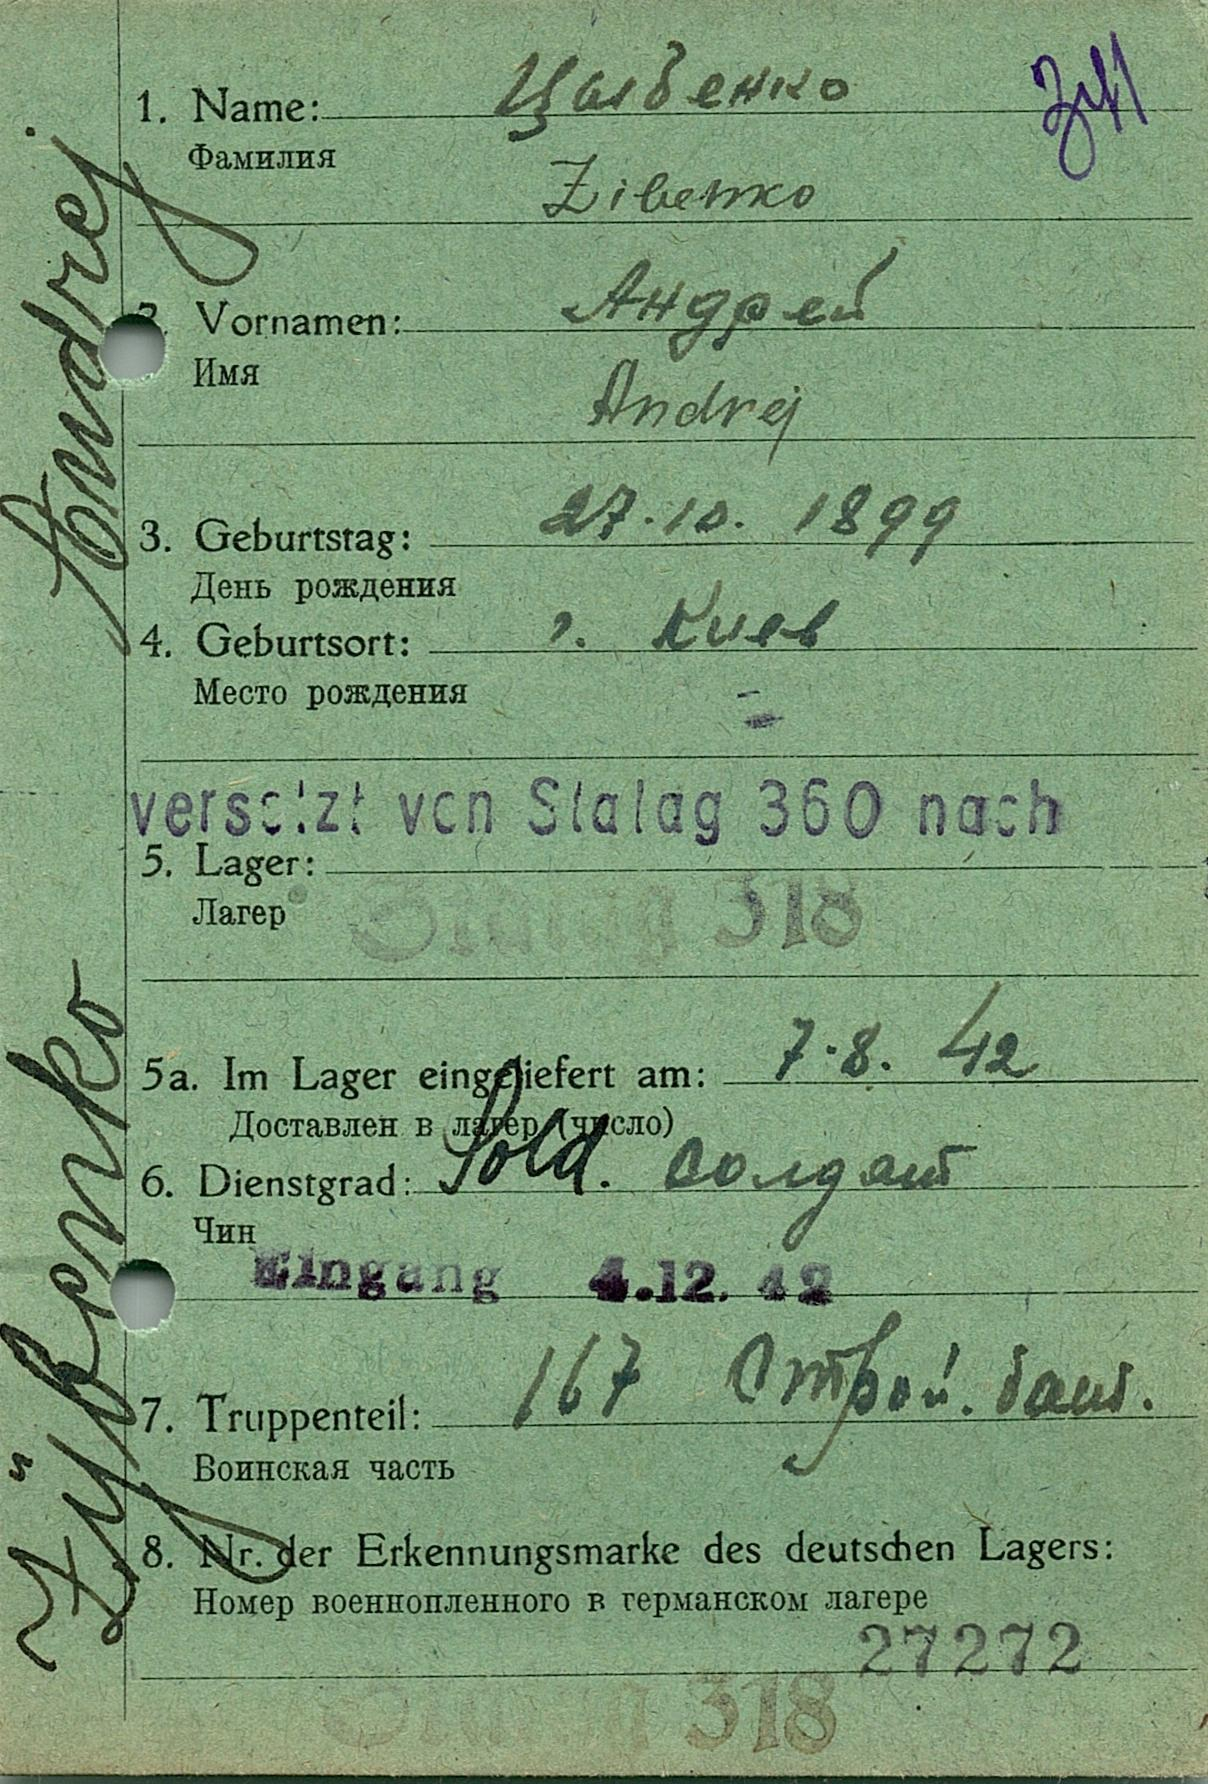 1. Name: Цыбенко
Фамилия
Zibenko
2. Vornamen: Андрей
Имя
Andrej
3. Geburtstag: 27.10.1899
День рождения
4. Geburtsort: г. Киев
Место рождения
versetzt von Stalag 360 nach
5. Lager:
Лагер
Stalag 318
5a. Im Lager eingeliefert am: 7.8.42
Доставлен в лагер (число)
6. Dienstgrad: Sold. солдат
Чин
Eingang 4.12.42
7. Truppenteil: 167 Строй. бат.
Воинская часть
8. Nr. der Erkennungsmarke des deutschen Lagers:
Номер военнопленного в германском лагере
27272
Stalag 318
Zÿbenko Andrej